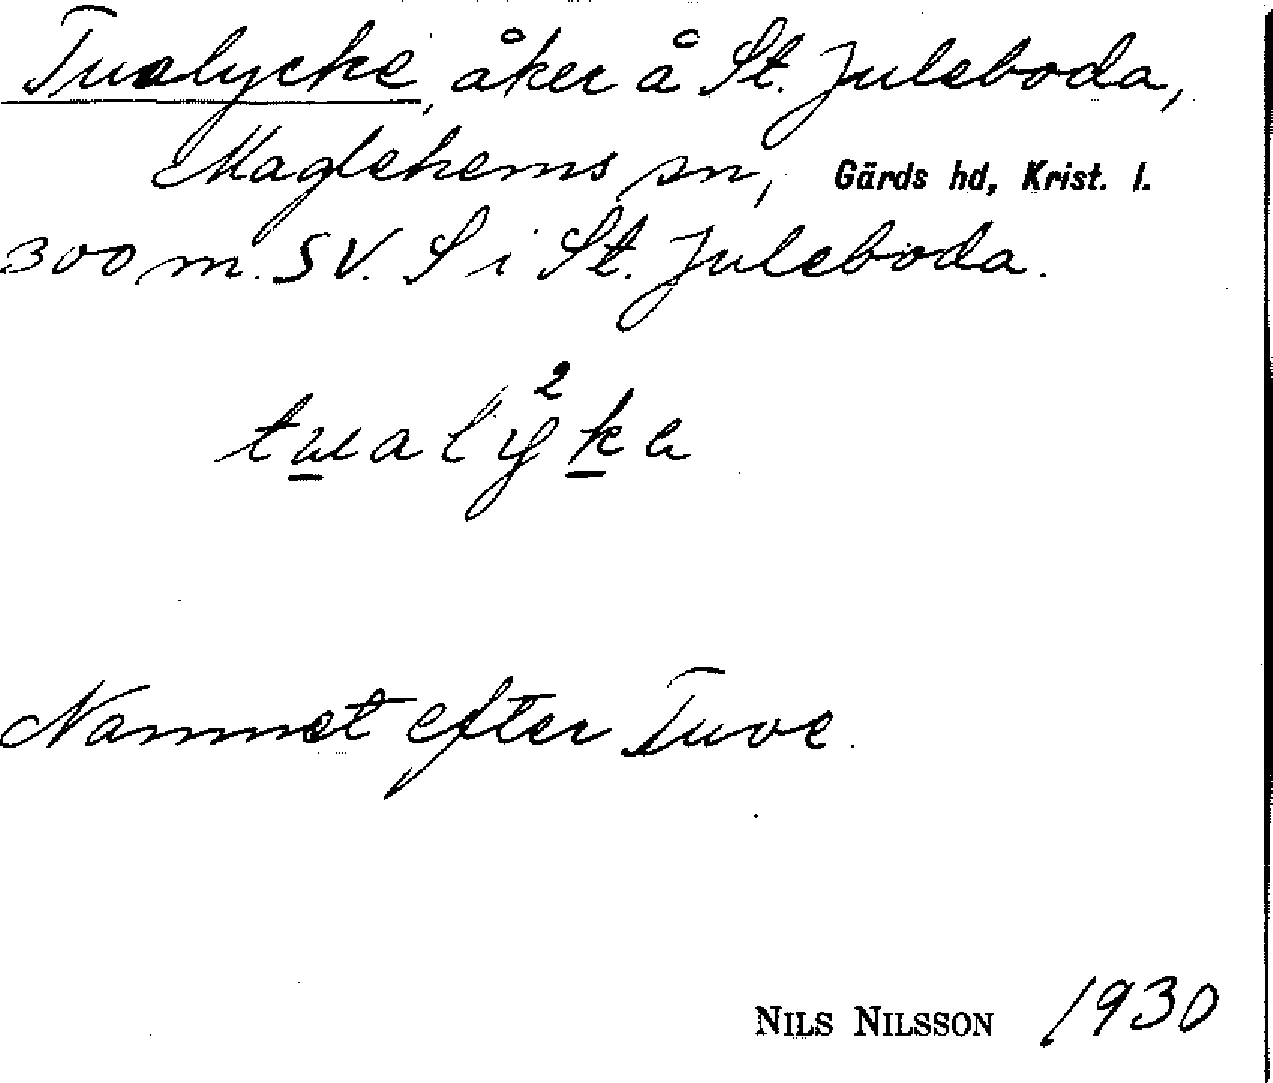 Tualycke, åker å St. Juleboda,
Maglehems sn, Gärds hd, Krist. l.
300 m. SV. S i St. Juleboda.
tualy²ka
Namnet efter Tuve.
NILS NILSSON 1930